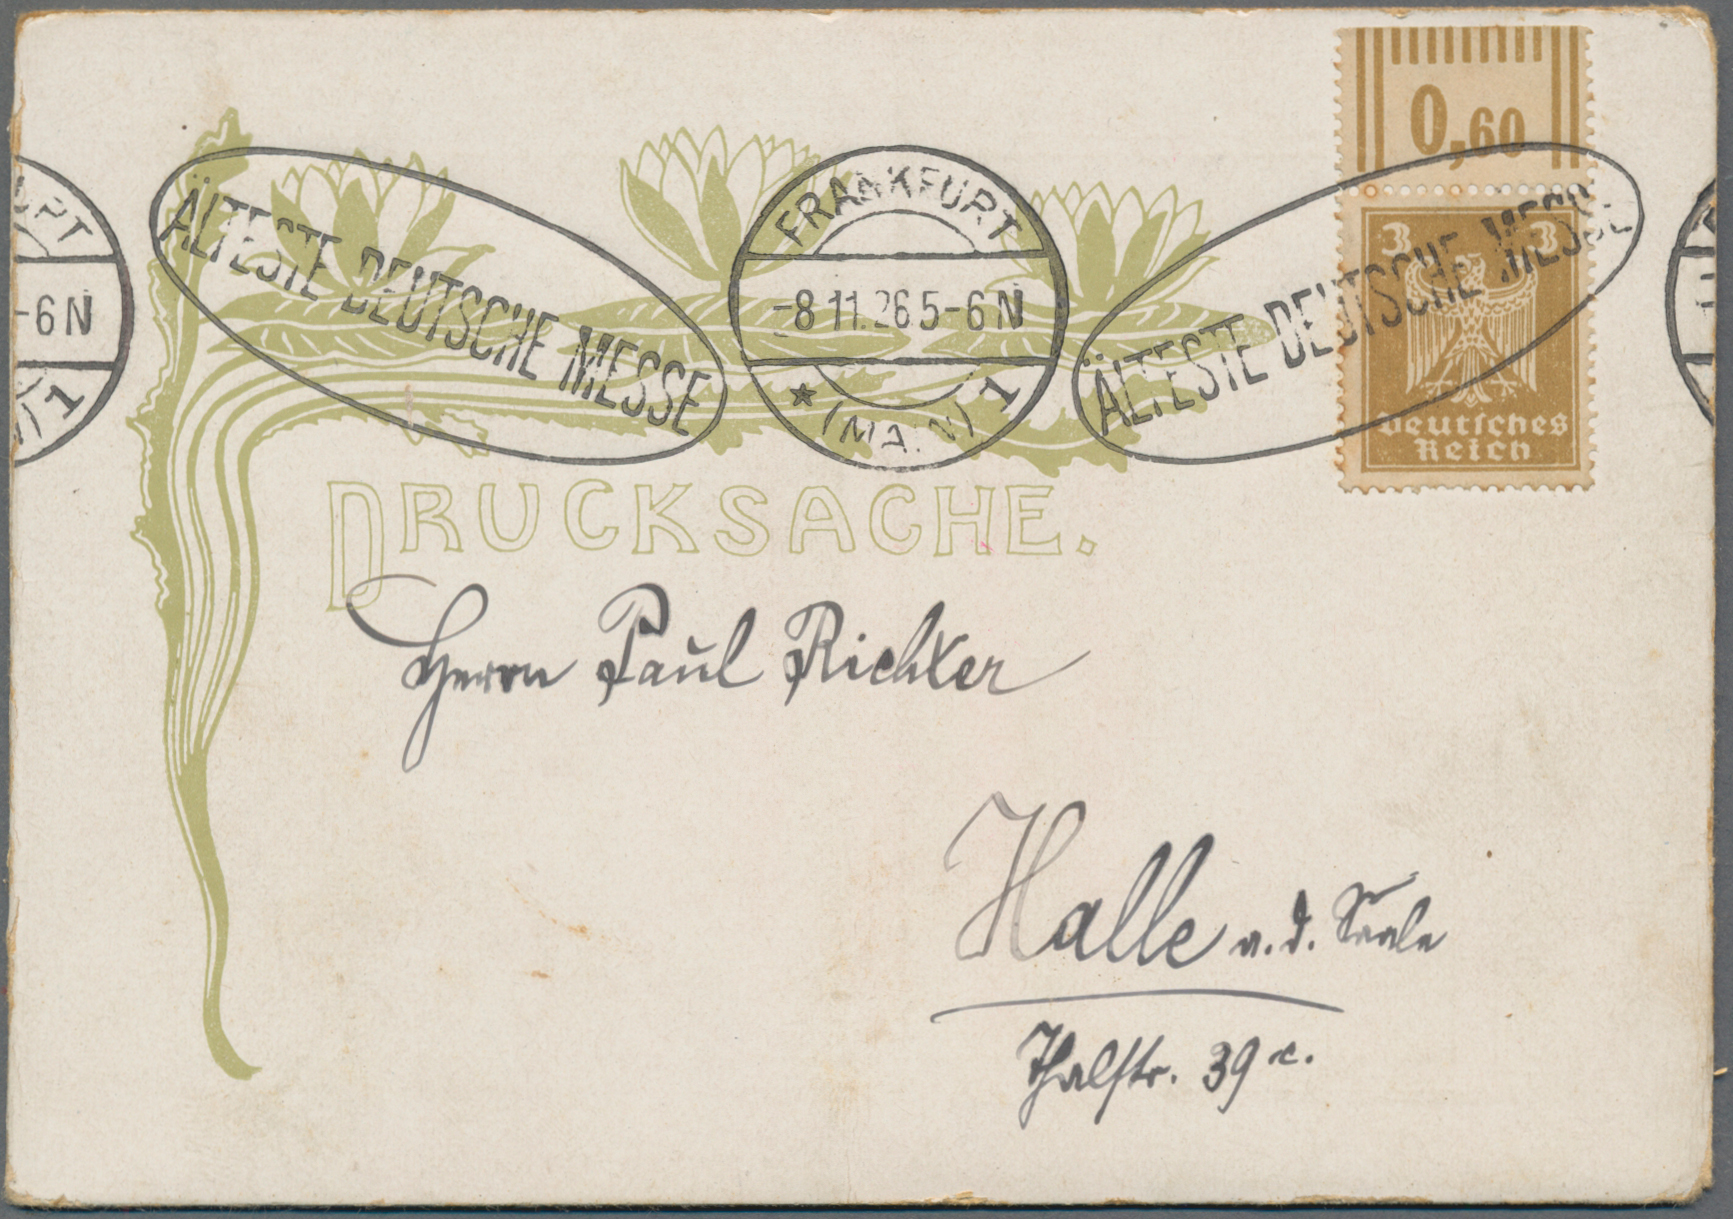 0,60
ÄLTESTE DEUTSCHE MESSE
FRANKFURT
-8.11.26 5-6 N
* (MAIN) 1
ÄLTESTE DEUTSCHE MESSE
3 3
Deutsches
Reich
-6 N
1
DRUCKSACHE.
Herrn Paul Richter
Halle a. d. Saale
Thalstr. 39 c.